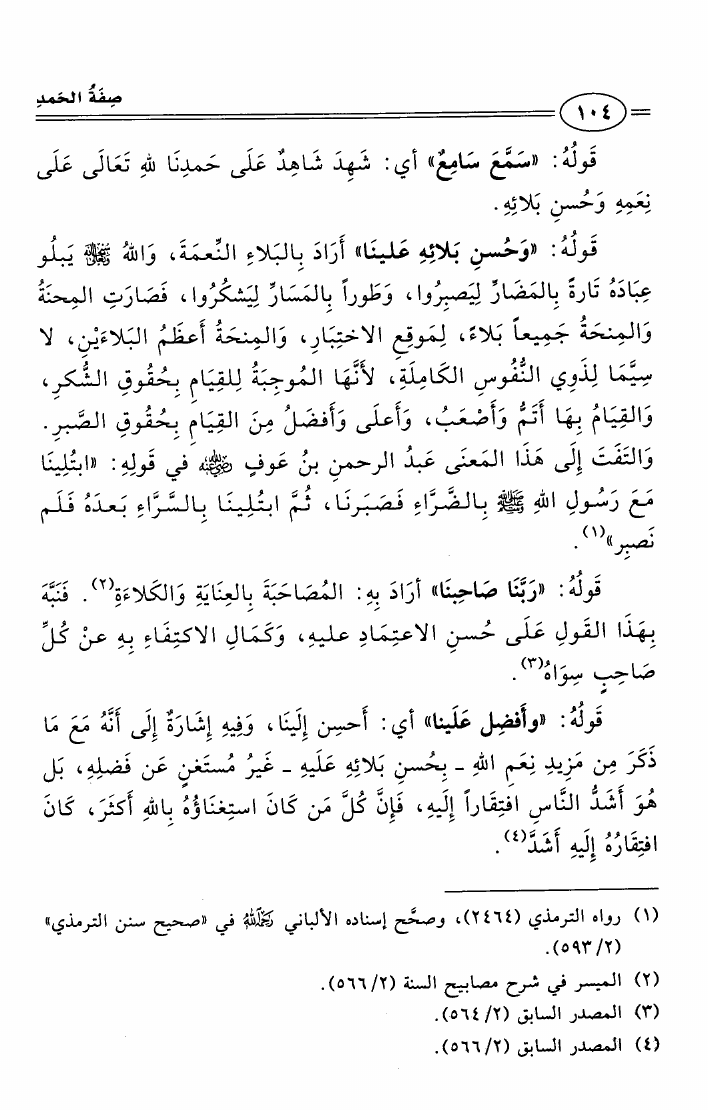 صِفَةُ الحَمدِ
١٠٤
قَولُهُ: «سَمَّعَ سَامِعٌ» أي: شَهِدَ شَاهِدٌ عَلَى حَمدِنَا للهِ تَعَالَى عَلَى
نِعَمِهِ وَحُسنِ بَلائِهِ.
قَولُهُ: «وَحُسنِ بَلائِهِ عَلَينَا» أرَادَ بِالبَلاءِ النِّعمَةَ، وَاللهُ ﷻ يَبلُو
عِبَادَهُ تَارةً بِالمَضَارِّ لِيَصبِرُوا، وَطَوراً بِالمَسَارِّ لِيَشكُرُوا، فَصَارَتِ المِحنَةُ
وَالمِنحَةُ جَمِيعاً بَلاءً، لِمَوقِعِ الاختِبَارِ، وَالمِنحَةُ أَعظَمُ البَلاءَيْنِ، لا
سِيَّمَا لِذَوِي النُّفُوسِ الكَامِلَةِ، لأَنَّهَا المُوجِبَةُ لِلقِيَامِ بِحُقُوقِ الشُّكرِ،
وَالقِيَامُ بِهَا أَتَمُّ وَأَصْعَبُ، وَأَعلَى وَأَفضَلُ مِنَ القِيَامِ بِحُقُوقِ الصَّبرِ.
وَالتَفَتَ إِلَى هَذَا المَعنَى عَبدُ الرحمنِ بنُ عَوفٍ رضي الله عنه في قَولِهِ: «ابتُلِينَا
مَعَ رَسُولِ اللهِ ﷺ بِالضَّرَّاءِ فَصَبَرنَا، ثُمَّ ابتُلِينَا بِالسَّرَّاءِ بَعدَهُ فَلَم
نَصبِر»(١).
قَولُهُ: «رَبَّنَا صَاحِبنَا» أرَادَ بِهِ: المُصَاحَبَةَ بِالعِنَايَةِ وَالكَلاءَةِ(٢). فَنَبَّهَ
بِهَذَا القَولِ عَلَى حُسنِ الاعتِمَادِ عليهِ، وَكَمَالِ الاكتِفَاءِ بِهِ عنْ كُلِّ
صَاحِبٍ سِوَاهُ(٣).
قَولُهُ: «وأَفضِل عَلَينا» أي: أَحسِن إِلَينَا، وَفِيهِ إِشَارَةٌ إِلَى أَنَّهُ مَعَ مَا
ذَكَرَ مِن مَزِيدِ نِعَمِ اللهِ ـ بِحُسنِ بَلائِهِ عَلَيهِ ـ غَيرُ مُستَغنٍ عَن فَضلِهِ، بَل
هُوَ أَشَدُّ النَّاسِ افتِقَاراً إِلَيهِ، فَإِنَّ كُلَّ مَن كَانَ استِغنَاؤُهُ بِاللهِ أَكثَرَ، كَانَ
افتِقَارُهُ إِلَيهِ أَشَدَّ(٤).
(١) رواه الترمذي (٢٤٦٤)، وصحَّح إسناده الألباني رحمه الله في «صحيح سنن الترمذي»
(٢/ ٥٩٣).
(٢) الميسر في شرح مصابيح السنة (٢/ ٥٦٦).
(٣) المصدر السابق (٢/ ٥٦٤).
(٤) المصدر السابق (٢/ ٥٦٦).